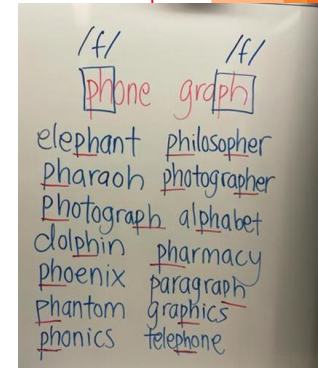 /f/ /f/
phone graph
elephant philosopher
pharaoh photographer
photograph alphabet
dolphin pharmacy
phoenix paragraph
phantom graphics
phonics telephone